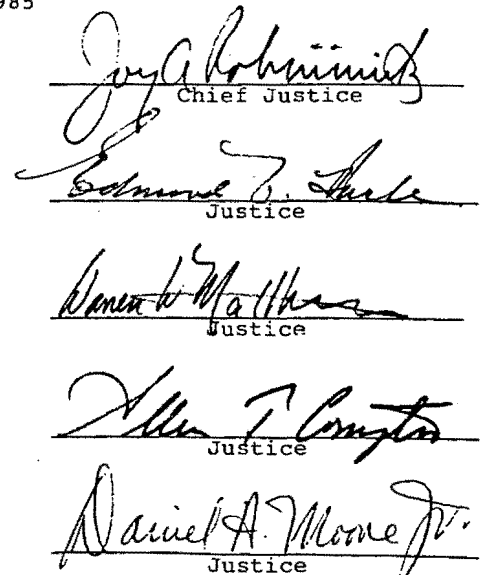 985
Jay A Rabinowitz
Chief Justice
Edmond W. Burke
Justice
Warren W Matthews
Justice
Allen T Compton
Justice
Daniel A. Moore Jr.
Justice